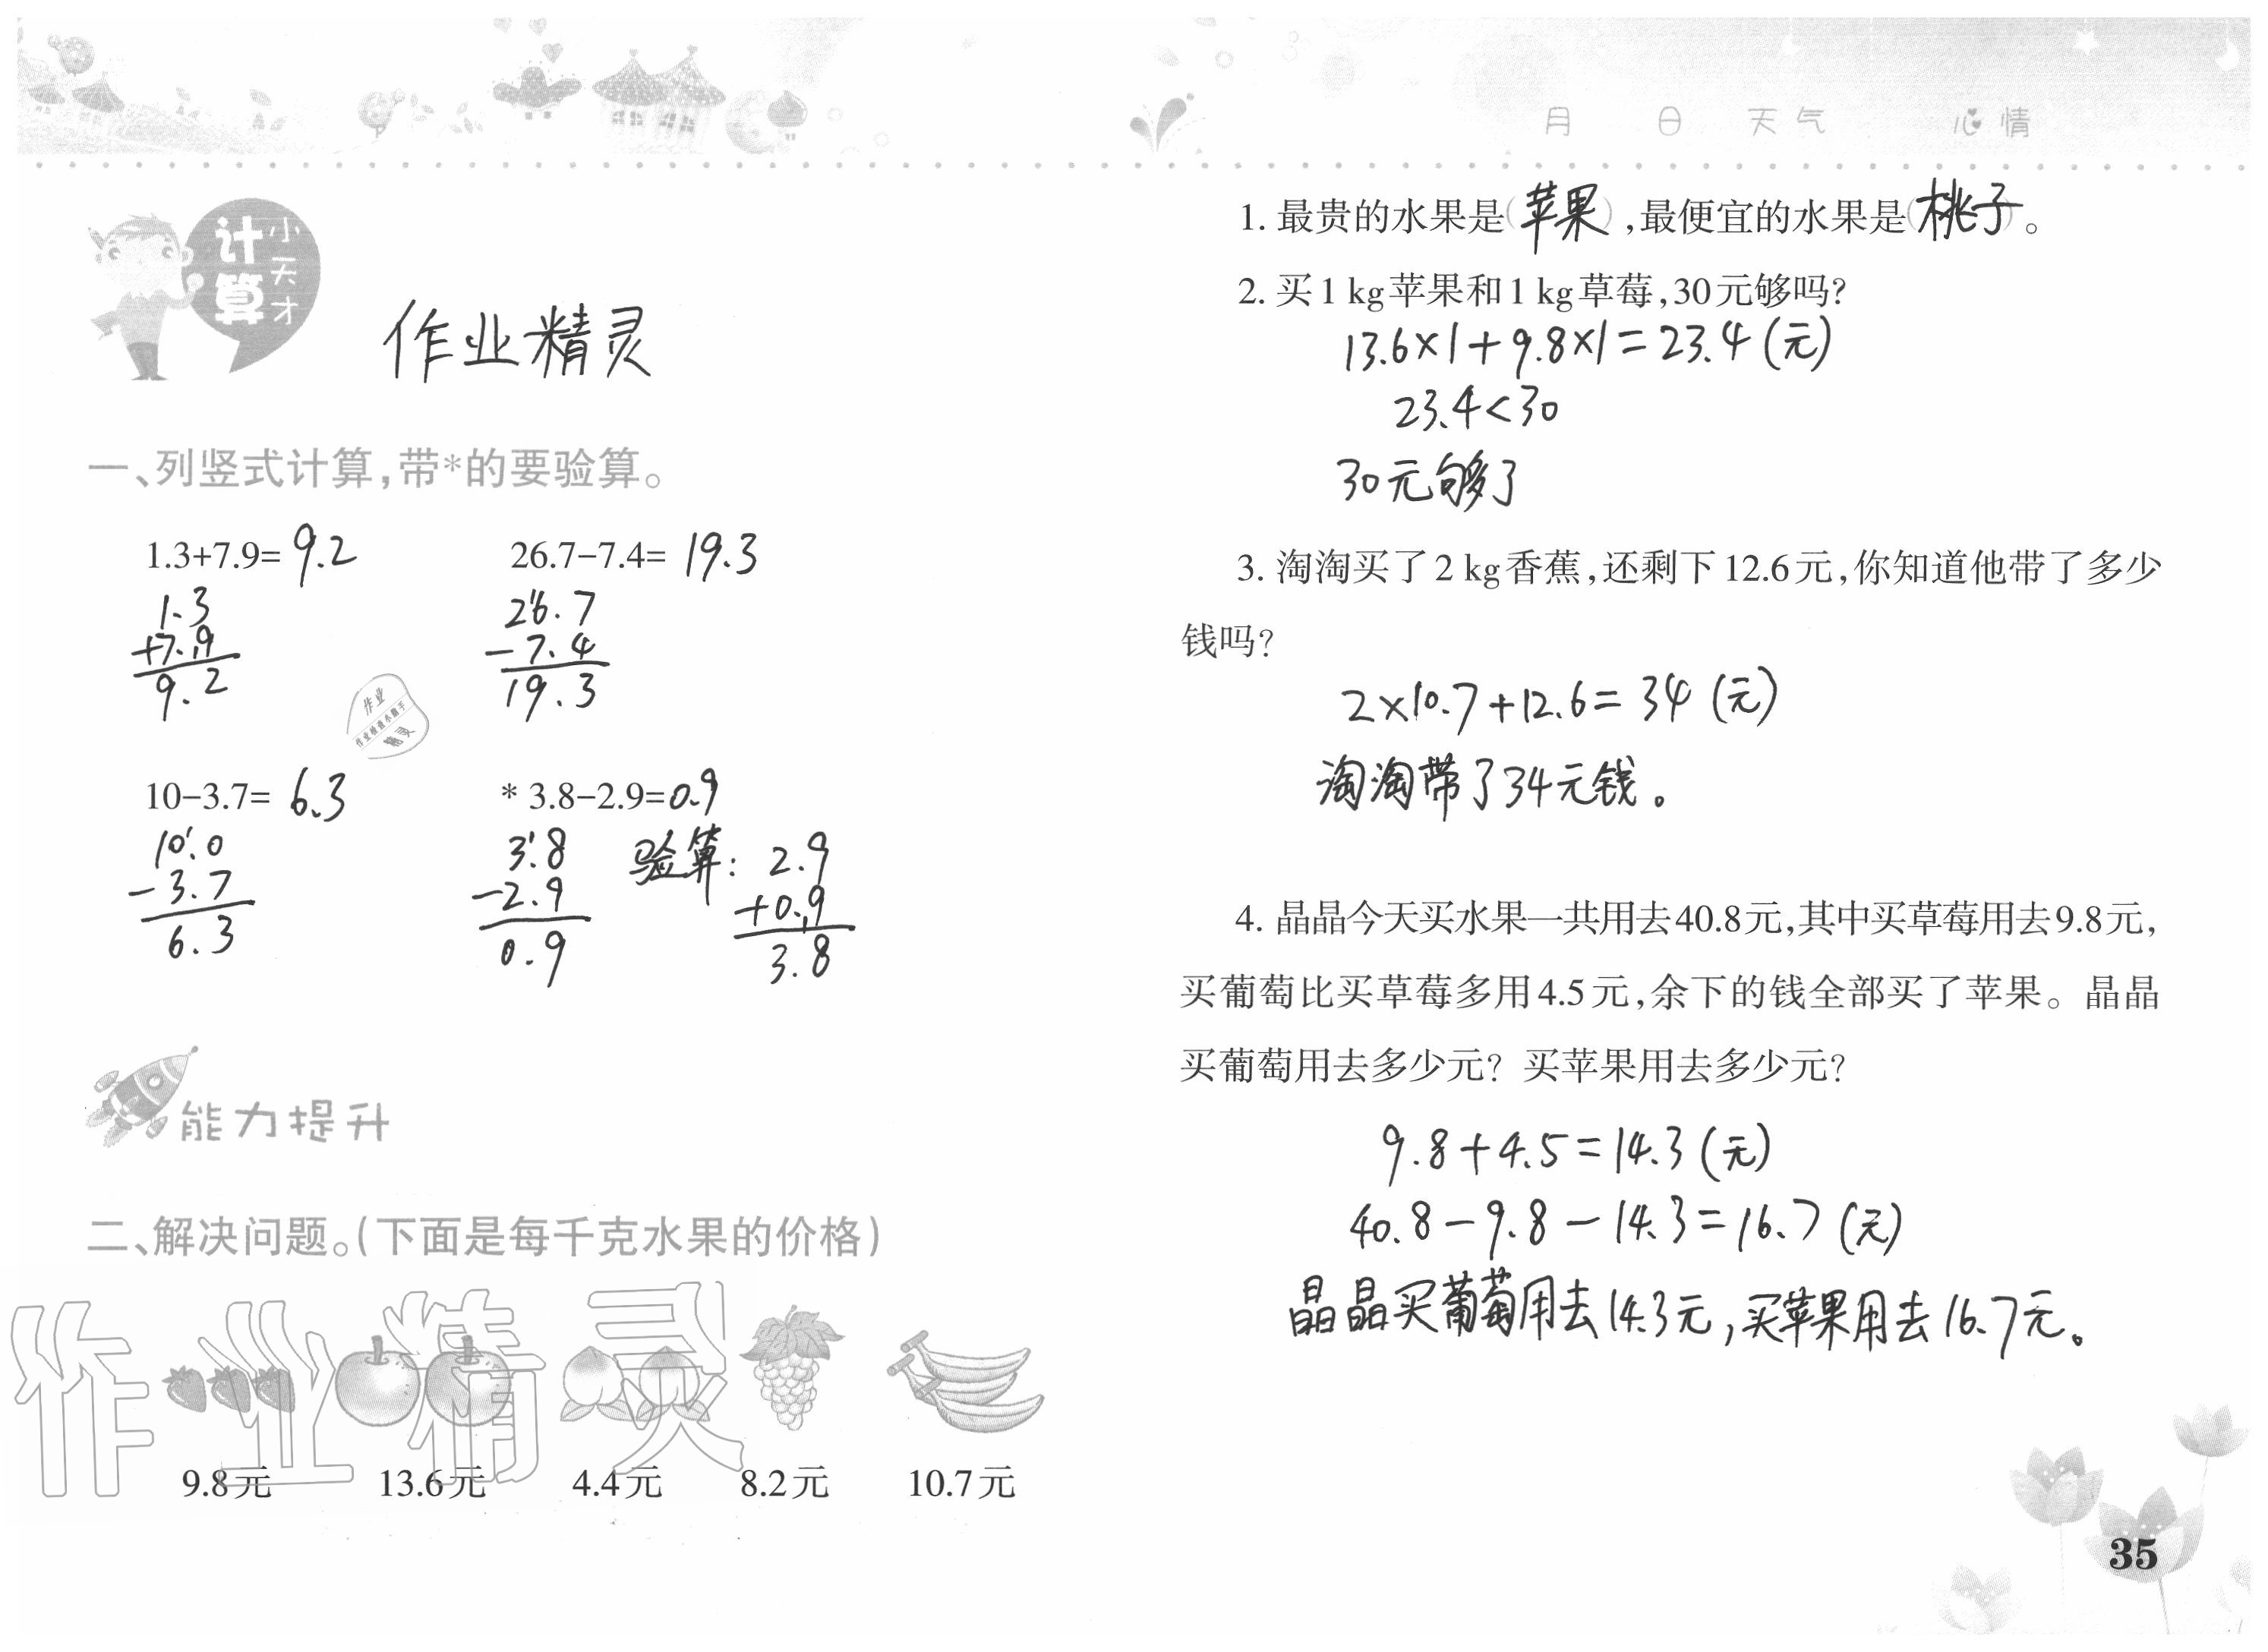 月 日 天气 心情
计算
小天才
作业精灵
一、列竖式计算,带*的要验算。
1.3+7.9= 9.2 26.7-7.4= 19.3
1.3 26.7
+7.9 -7.4
9.2 19.3
作业
作业检查小帮手
精灵
10-3.7= 6.3 * 3.8-2.9=0.9
10.0 3.8 验算: 2.9
-3.7 -2.9 +0.9
6.3 0.9 3.8
能力提升
二、解决问题。(下面是每千克水果的价格)
作业精灵
9.8元 13.6元 4.4元 8.2元 10.7元
1. 最贵的水果是(苹果),最便宜的水果是(桃子)。
2. 买1 kg苹果和1 kg草莓,30元够吗?
13.6×1+9.8×1=23.4(元)
23.4<30
30元够了
3. 淘淘买了2 kg香蕉,还剩下12.6元,你知道他带了多少
钱吗?
2×10.7+12.6=34(元)
淘淘带了34元钱。
4. 晶晶今天买水果一共用去40.8元,其中买草莓用去9.8元,
买葡萄比买草莓多用4.5元,余下的钱全部买了苹果。晶晶
买葡萄用去多少元? 买苹果用去多少元?
9.8+4.5=14.3(元)
40.8-9.8-14.3=16.7(元)
晶晶买葡萄用去14.3元,买苹果用去16.7元。
35